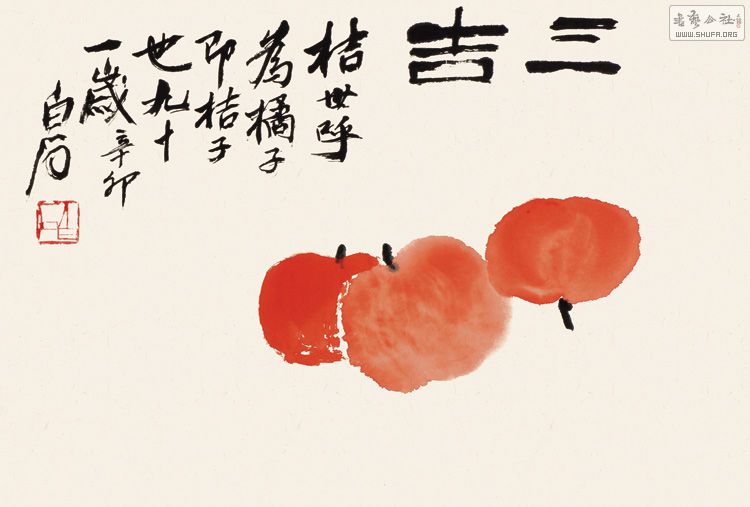 三吉
桔世呼
為橘子
即桔子
也九十
一歲辛卯
白石
書藝公社
WWW.SHUFA.ORG